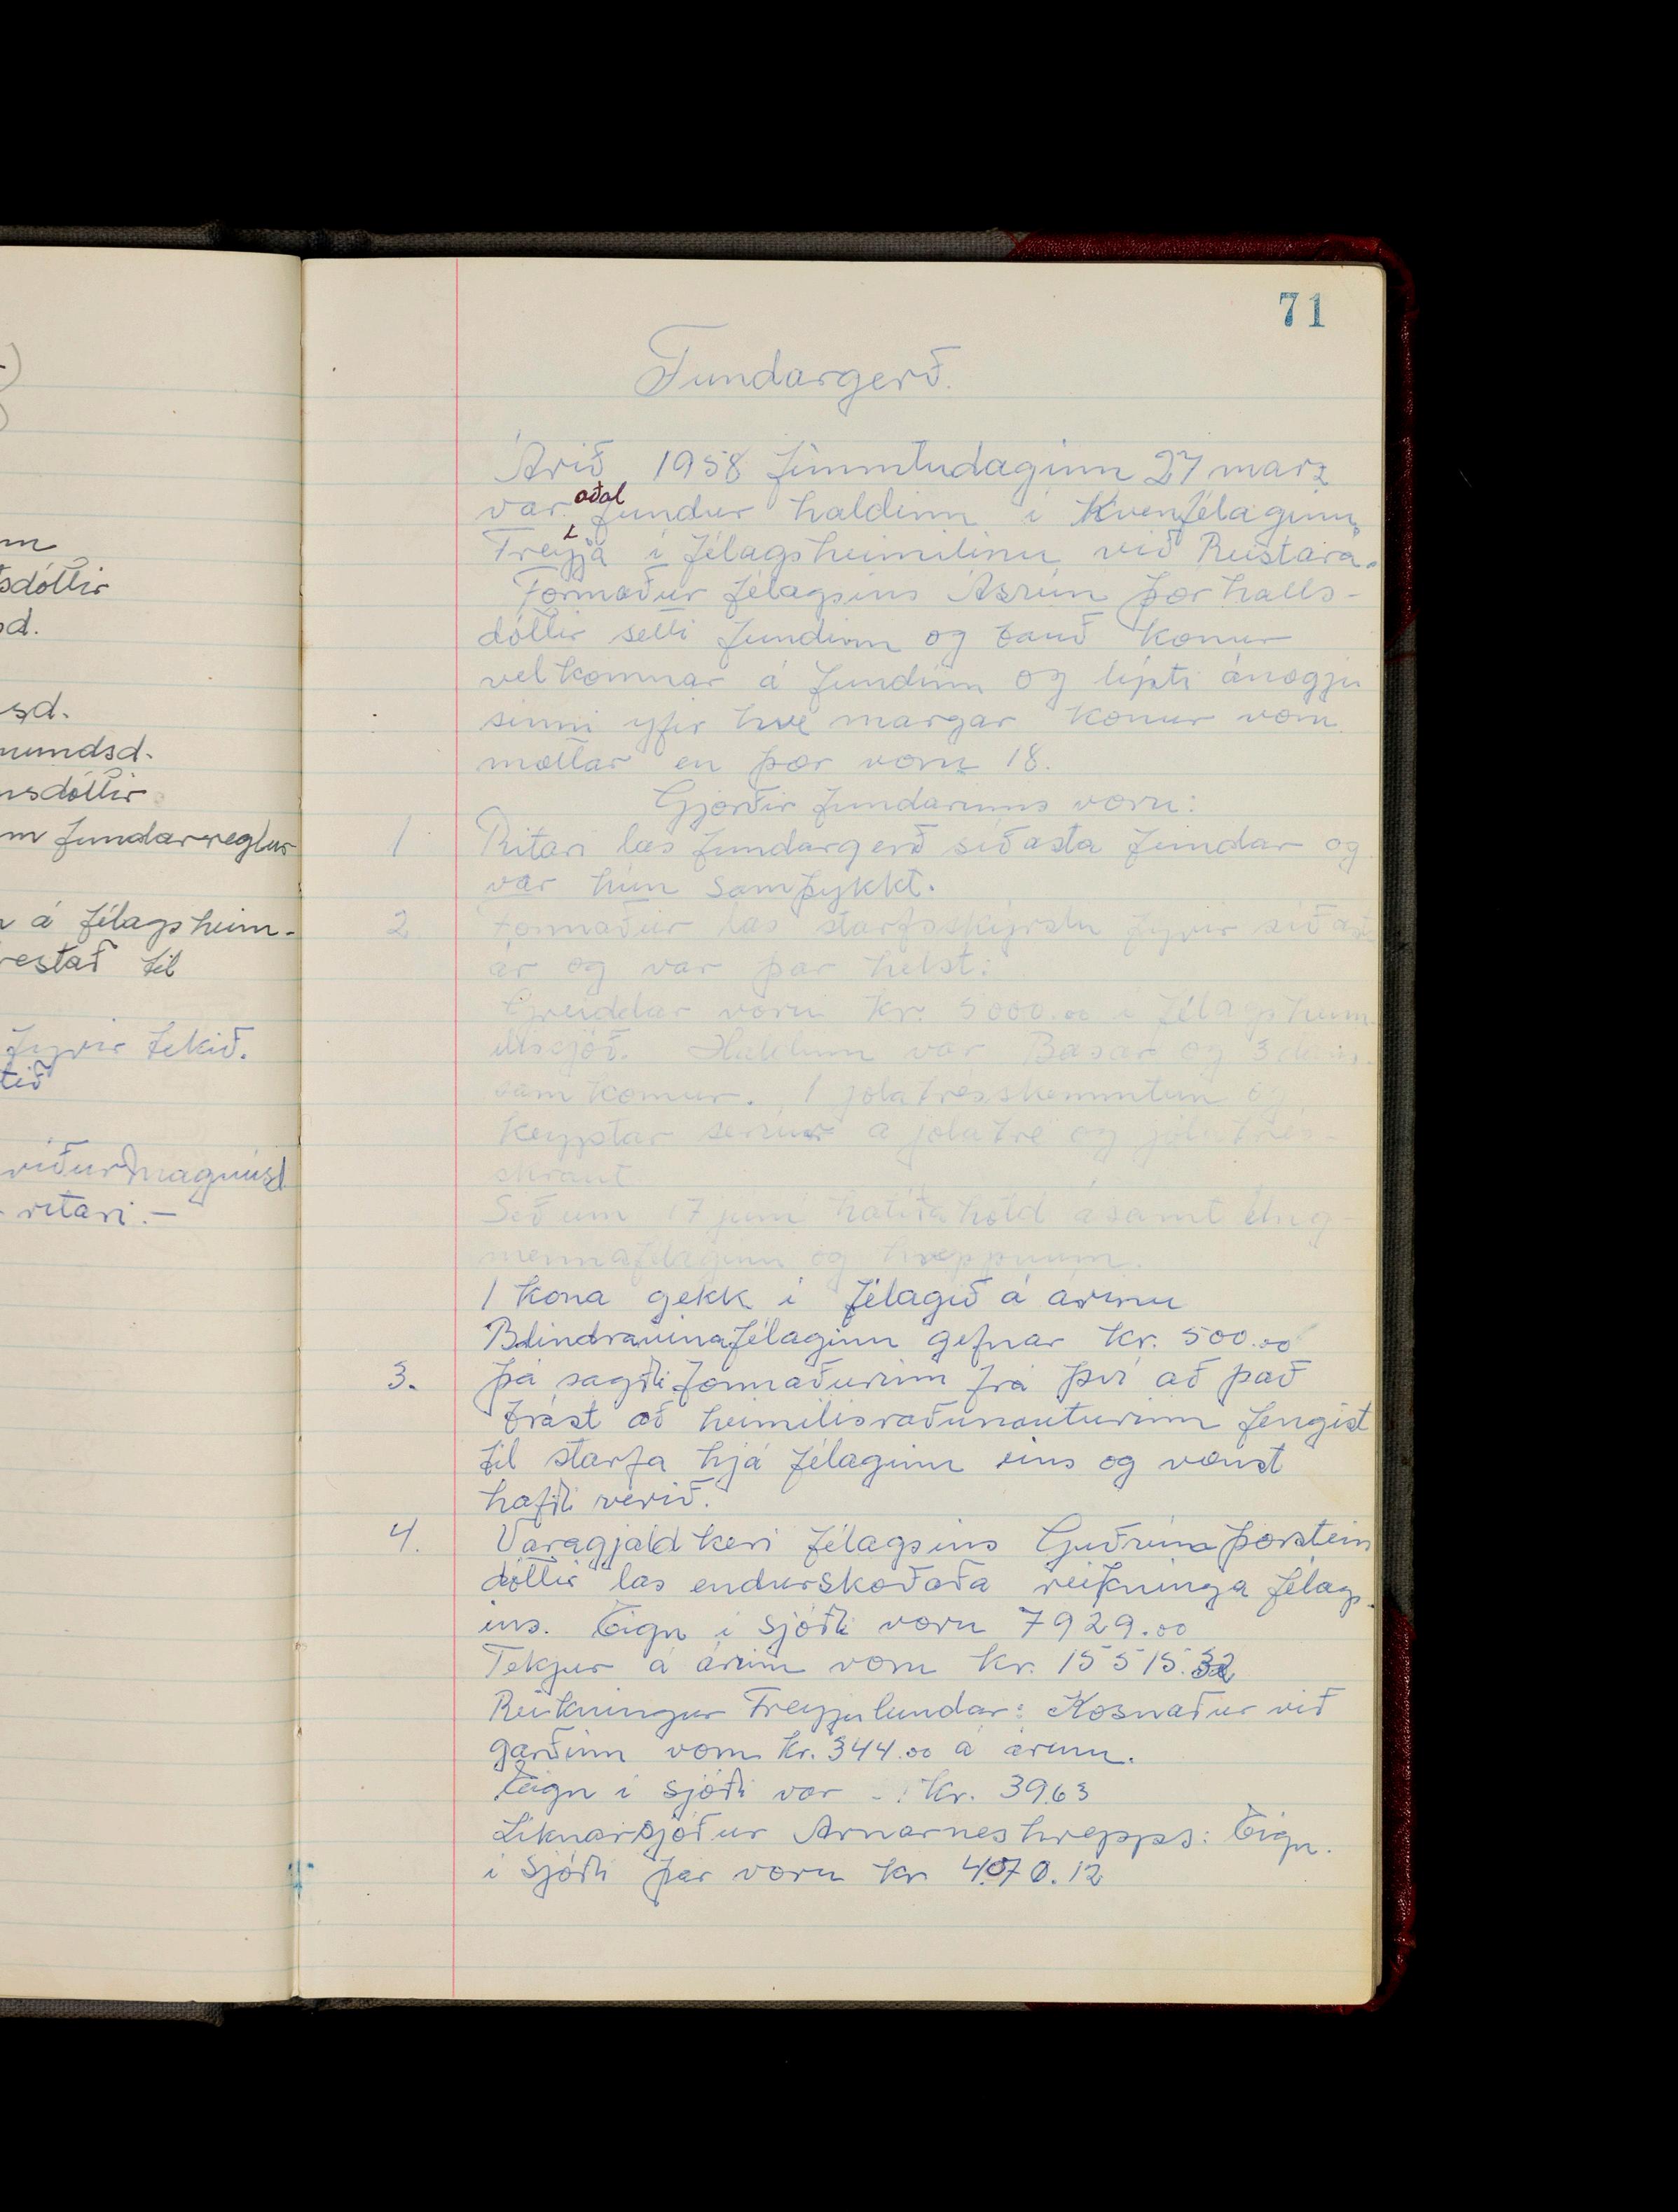 m
sdóttir
sd.
sd.
mundsd.
nsdóttir
m fundarreglur
n á félagsheim-
restað til
fyrir tekið.
tið
ríður Magnúsd
ritari.-
71
Fundargerð.
Árið 1958 fimmtudaginn 27 marz
var aðal fundur haldinn í Kvenfélaginu
Freyja í félagsheimilinu við Reistará.
Formaður félagsins Ásrún Þórhalls-
dóttir setti fundinn og bauð konur
velkomnar á fundinn og lýsti ánægju
sinni yfir hve margar konur voru
mættar en þær voru 18.
Gjörðir fundarins voru:
1 Ritari las fundargerð síðasta fundar og
var hún samþykkt.
2 Formaður las starfsskýrslu fyrir síðast
ár og var þar helst:
Greiddar voru kr. 5000.00 í félagsheim
ilissjóð. Haldinn var Basar og 3 dans
samkomur. 1 jólatrésskemmtun og
Keyptar seríur á jólatré og jólatrés-
skraut
Séð um 17 júní hátíðahöld ásamt Ung-
mennafélaginu og hreppnum.
1 kona gekk í félagið á árinu
Blindravinafélaginu gefnar kr. 500.00
3. Þá sagði formaðurinn frá því að það
brást að heimilisráðunauturinn fengist
til starfa hjá félaginu eins og vænst
hafði verið.
4. Varagjaldkeri félagsins Guðrún Þorstein
dóttir las endurskoðaða reikninga félags-
ins. Eign í sjóði voru 7929.00
Tekjur á árinu voru kr. 15515.32
Reikningur Freyjulundar: Kosnaður við
garðinn voru kr. 344.00 á árinu.
Eign í sjóði var kr. 3963
Líknarsjóður Arnarneshrepps: Eign.
í sjóði þar voru kr 4070.12